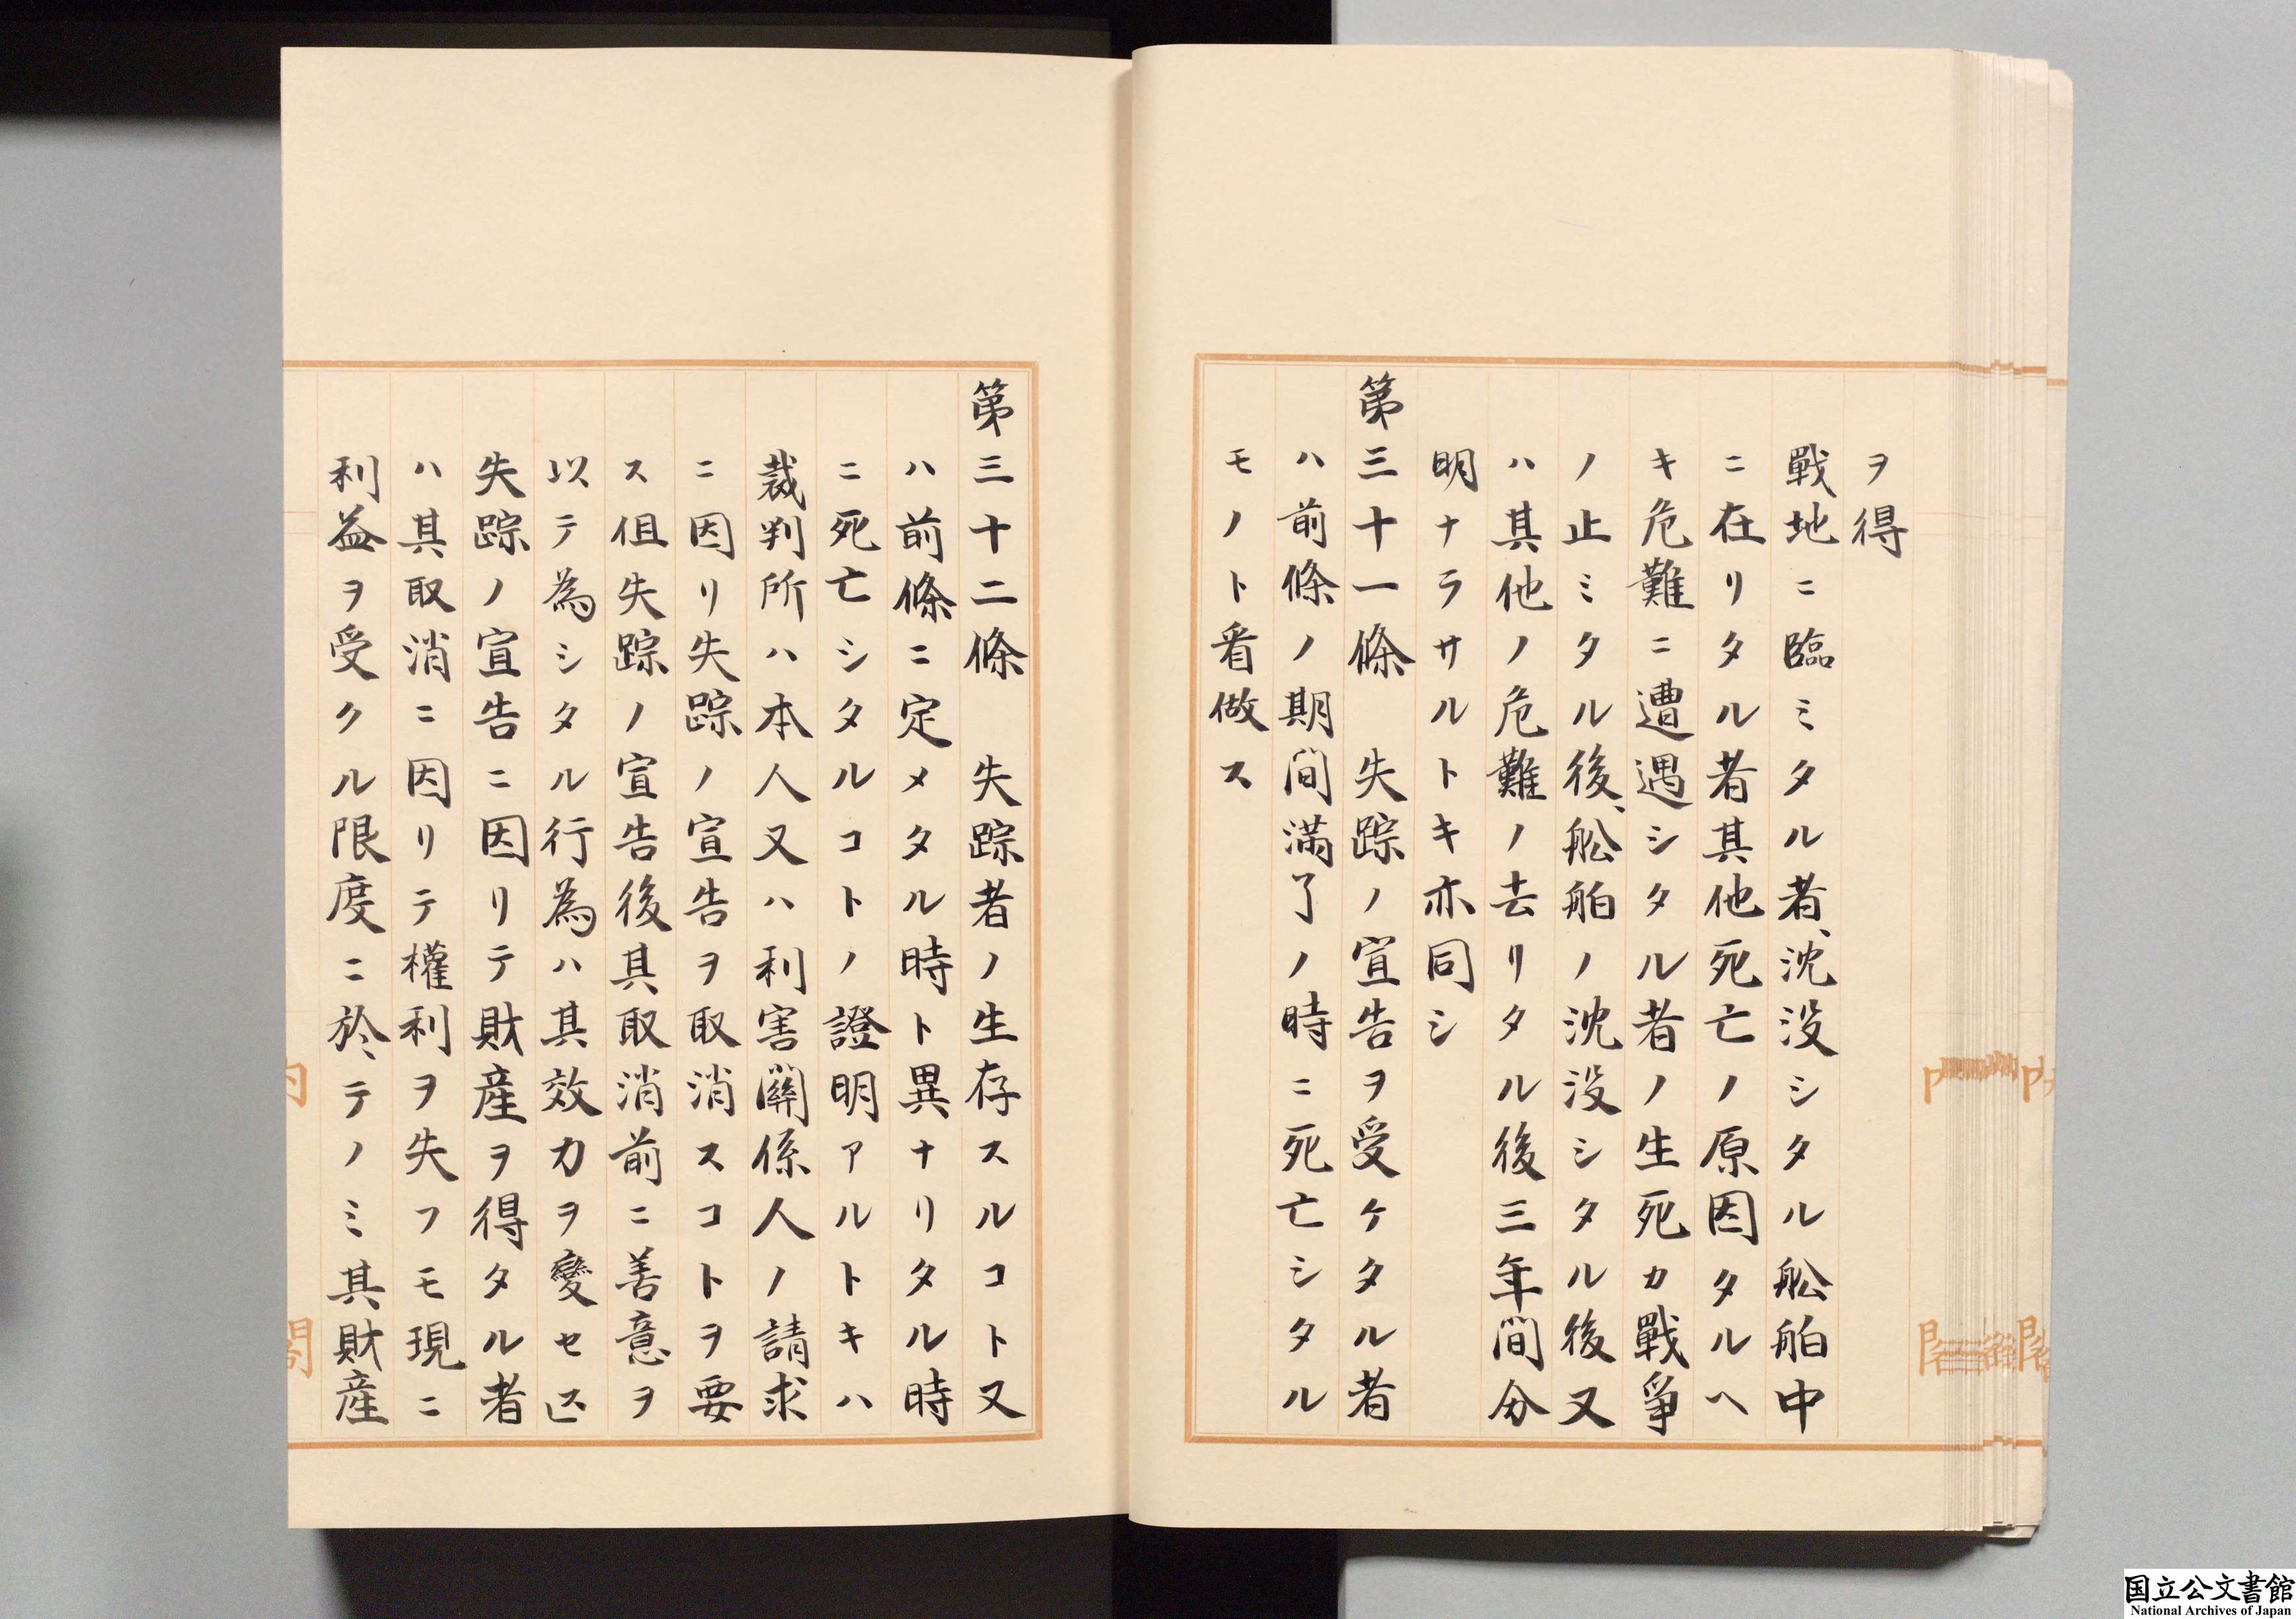 ヲ得
戰地ニ臨ミタル者、沈没シタル舩舶中
ニ在リタル者其他死亡ノ原因タルヘ
キ危難ニ遭遇シタル者ノ生死カ戰爭
ノ止ミタル後、舩舶ノ沈没シタル後又
ハ其他ノ危難ノ去リタル後三年間分
明ナラサルトキ亦同シ
第三十一條　失踪ノ宣告ヲ受ケタル者
ハ前條ノ期間滿了ノ時ニ死亡シタル
モノト看做ス
第三十二條　失踪者ノ生存スルコト又
ハ前條ニ定メタル時ト異ナリタル時
ニ死亡シタルコトノ證明アルトキハ
裁判所ハ本人又ハ利害關係人ノ請求
ニ因リ失踪ノ宣告ヲ取消スコトヲ要
ス但失踪ノ宣告後其取消前ニ善意ヲ
以テ為シタル行為ハ其效力ヲ變セス
失踪ノ宣告ニ因リテ財産ヲ得タル者
ハ其取消ニ因リテ權利ヲ失フモ現ニ
利益ヲ受クル限度ニ於テノミ其財産
国立公文書館
National Archives of Japan